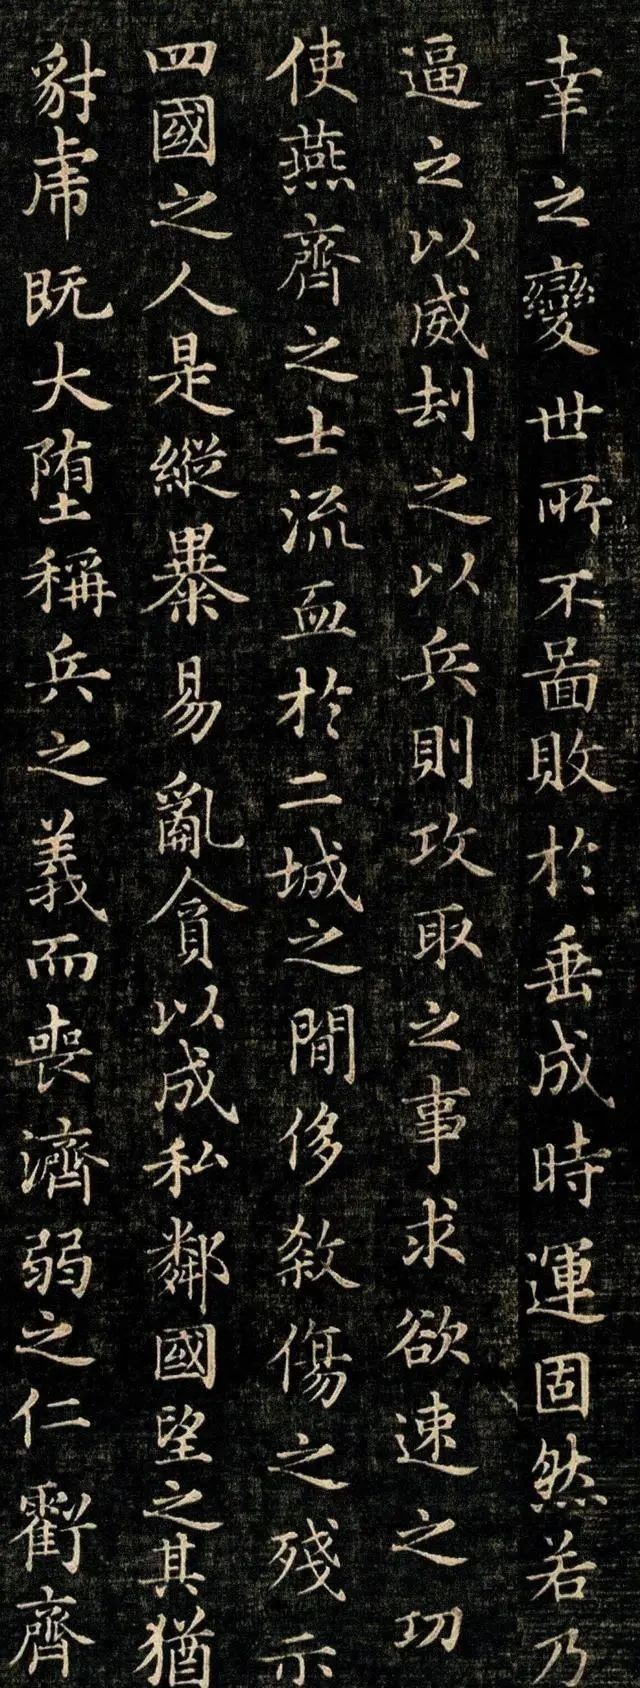 幸之變世所不啚敗於垂成時運固然若乃
逼之以威刧之以兵則攻取之事求欲速之功
使燕齊之士流血於二城之間侈殺傷之殘示
四國之人是縱暴易亂貪以成私鄰國望之其猶
豺虎既大堕稱兵之義而喪濟弱之仁虧齊